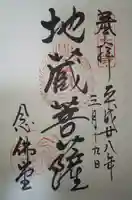 奉拝 平成廿八年
三月十九日
地蔵菩薩
念佛堂